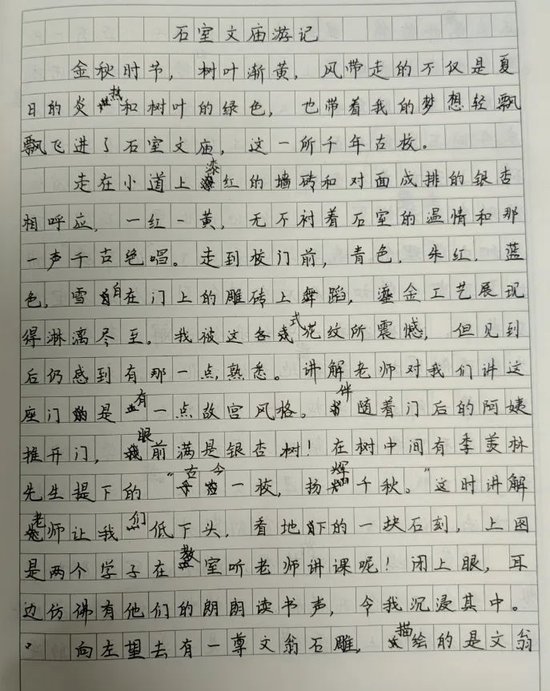 石室文庙游记
金秋时节，树叶渐黄，风带走的不仅是夏
日的炎热和树叶的绿色，也带着我的梦想轻飘
飘飞进了石室文庙，这一所千年古校。
走在小道上漆红的墙砖和对面成排的银杏
相呼应，一红一黄，无不衬着石室的温情和那
一声千古绝唱。走到校门前，青色，朱红，蓝
色，雪白在门上的雕砖上舞蹈，鎏金工艺展现
得淋漓尽至。我被这各式花纹所震憾，但见到
后仍感到有那一点熟悉。讲解老师对我们讲这
座门的是有一点故宫风格。伴随着门后的阿姨
推开门，眼前满是银杏树！在树中间有季羡林
先生提下的“古今一校，扬辉千秋。”这时讲解
老师让我们低下头，看地下的一块石刻，上图
是两个学子在教室听老师讲课呢！闭上眼，耳
边仿佛有他们的朗朗读书声，令我沉浸其中。
向左望去有一尊文翁石雕，描绘的是文翁